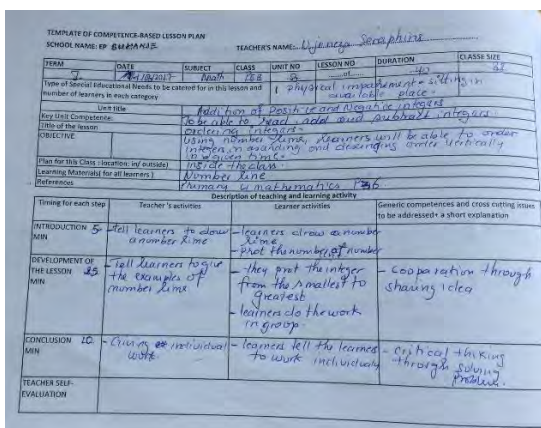 TEMPLATE OF COMPETENCE-BASED LESSON PLAN
SCHOOL NAME: EP TEACHER'S NAME: Seraphine
TERM DATE SUBJECT CLASS UNIT NO LESSON NO DURATION CLASSE SIZE
I Math P6B of 40
Type of Special Educational Needs to be catered for in this lesson and number of learners in each category 1 physical impairement = sitting in available place.
Unit title Addition of Positive and Negative integers
Key Unit Competence: To be able to read, add and subtract integers.
Title of the lesson ordering integers.
OBJECTIVE Using number line, learners will be able to order
integers in assanding and descending order vertically
in a given time.
Plan for this Class (location: in/ outside) Inside the class.
Learning Materials( for all learners ) Number line
References Primary mathematics
Description of teaching and learning activity
Timing for each step Teacher's activities Learner activities Generic competences and cross cutting issues to be addressed+ a short explanation
INTRODUCTION 5 MIN
- Tell learners to draw a number lime
- learners drow a number lime
- prot the number of number
DEVELOPMENT OF THE LESSON 25 MIN
- Tell learners to give the examples of number lime
- they prot the integer from the smallest to greatest
- learners do the work in groop.
- cooparation through sharing idea
CONCLUSION 10 MIN
- Giving individual work.
- learners tell the learners to work individualy
- critical thiking through solving problem.
TEACHER SELF-EVALUATION